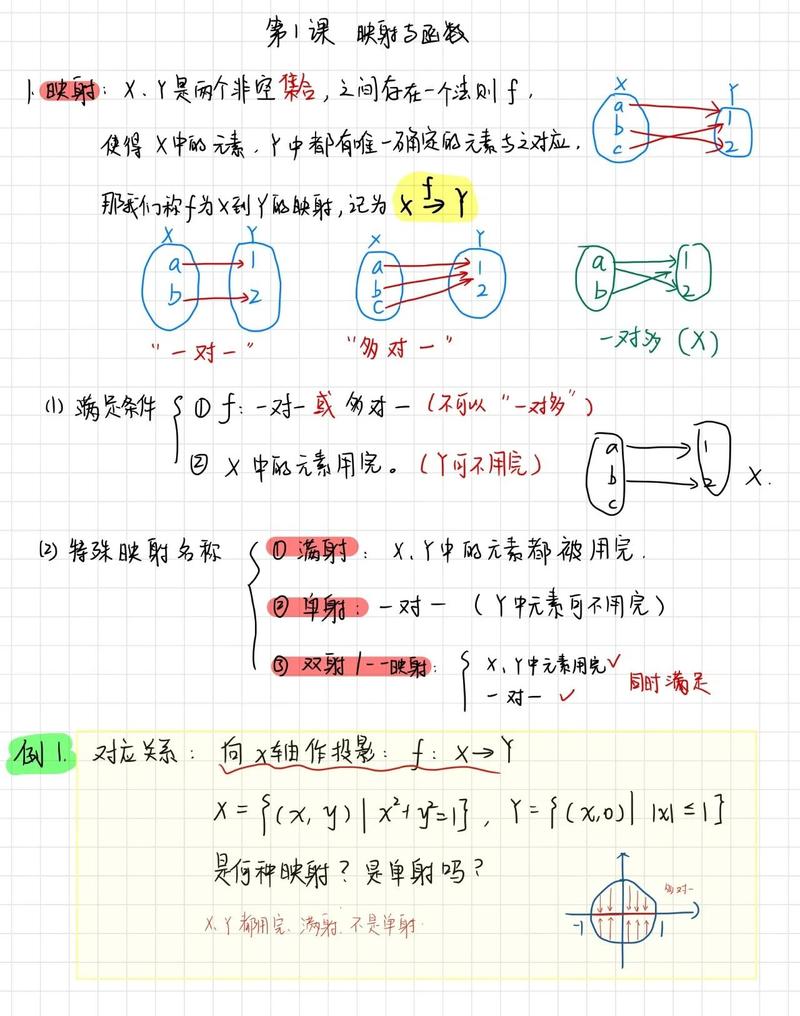 第1课 映射与函数
1. 映射: X、Y是两个非空集合, 之间存在一个法则f,
X Y
a 1
b 2
c
使得 X中的元素, Y中都有唯一确定的元素与之对应,
那我们称f为X到Y的映射, 记为 X f→ Y
X Y
a 1
b 2
"一对一"
X Y
a 1
b 2
c
"多对一"
a 1
b 2
一对多 (X)
(1) 满足条件
① f: 一对一或多对一 (不可以"一对多")
② X中的元素用完。(Y可不用完)
a 1
b 2
c
X.
(2) 特殊映射名称
① 满射: X、Y中的元素都被用完.
② 单射: 一对一 (Y中元素可不用完)
③ 双射/一一映射:
X、Y中元素用完 ✓
一对一 ✓
同时满足
例1. 对应关系: 向x轴作投影: f: X→Y
X={(x, y)| x²+y²=1}, Y={(x,0)| |x|≤1}
是何种映射? 是单射吗?
X、Y都用完、满射、不是单射.
多对一
-1 1